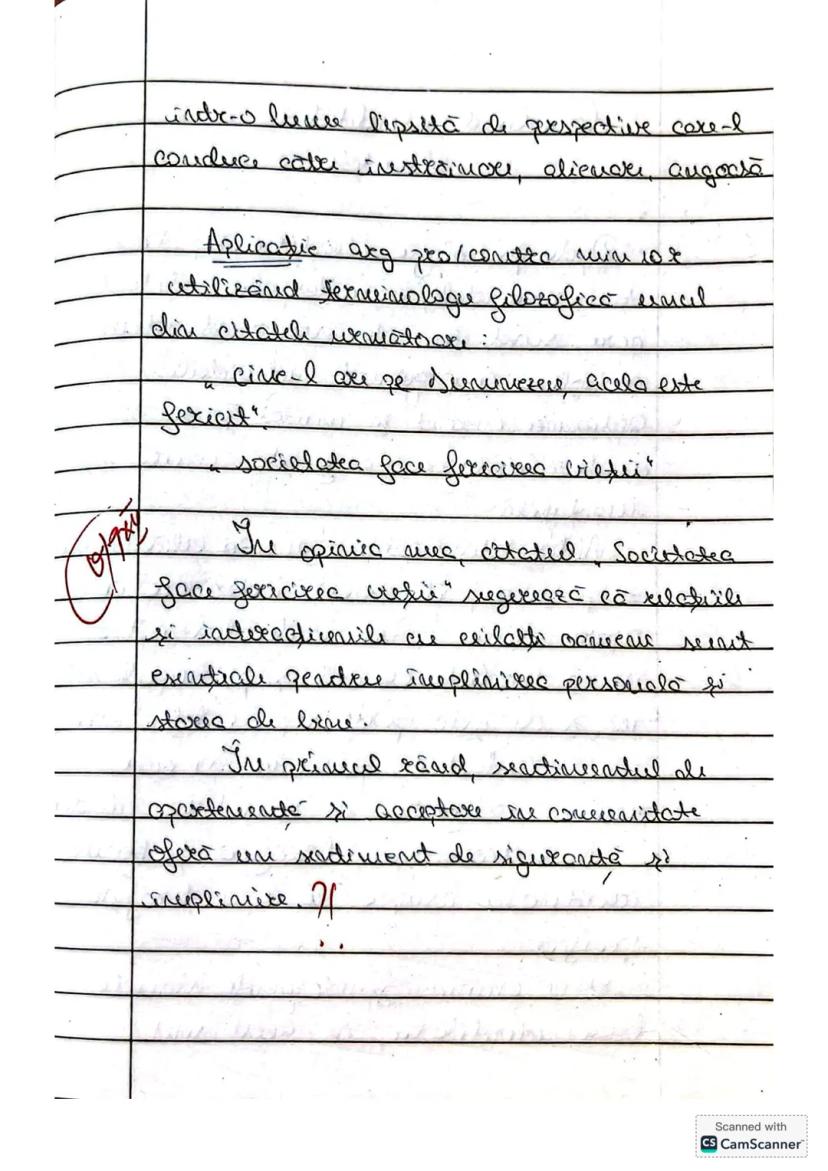 într-o lume lipsită de perspective care-l
conduce către înstrăinare, alienare, angoasă
Aplicație arg pro/contra min 10 r
utilizând terminologie filozofică unul
din citatele următoare :
„ cine-l are pe Dumnezeu, acela este
fericit“.
„ societatea face fericirea vieții“
În opinia mea, citatul „Societatea
face fericirea vieții“ sugerează că relațiile
și interacțiunile cu ceilalți oameni sunt
esențiale pentru împlinirea personală și
starea de bine.
În primul rând, sentimentul de
apartenență și acceptare în comunitate
oferă un sentiment de siguranță și
împlinire. ?!
Scanned with
CS CamScanner